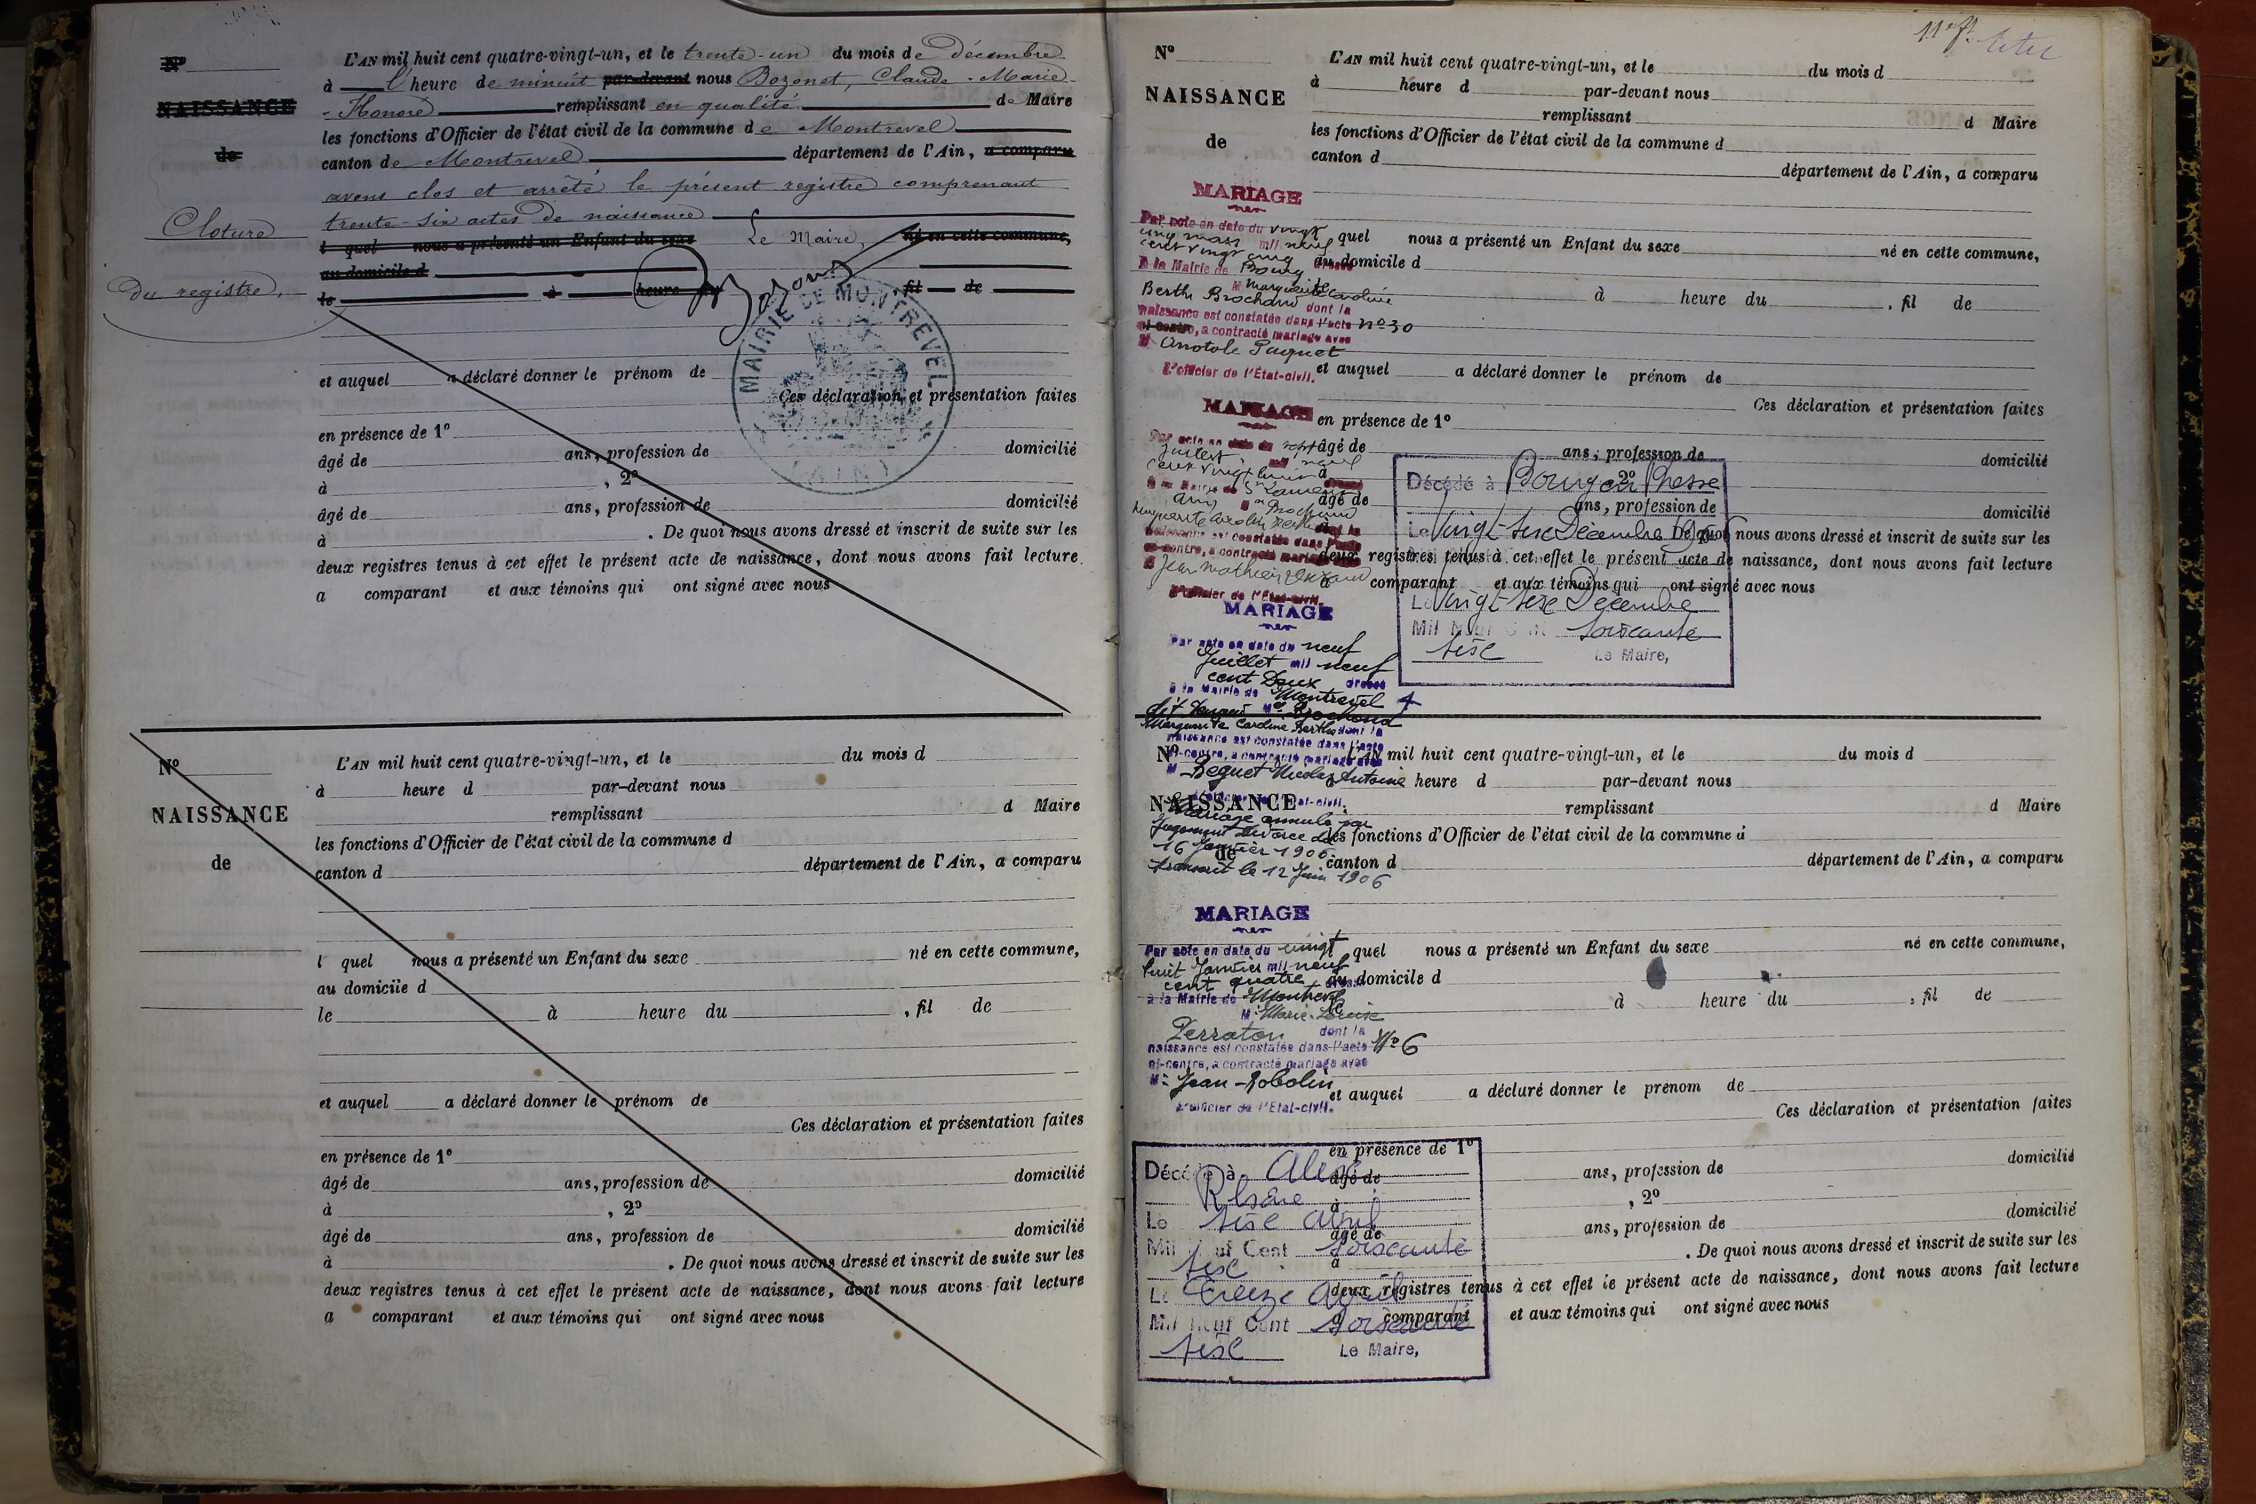 Nº
NAISSANCE
de
Cloture
du registre.
L'AN mil huit cent quatre-vingt-un, et le trente-un du mois de décembre
à l'heure de minuit par-devant nous Bozonet, Claude-Marie
-Honoré remplissant en qualité de Maire
les fonctions d'Officier de l'état civil de la commune de Montrevel
canton de Montrevel département de l'Ain, a comparu
avons clos et arrêté le présent registre comprenant
trente-six actes de naissance
l quel nous a présenté un Enfant du sexe Le Maire, né en cette commune,
au domicile d
le à heure du Bozonet fil de
MAIRIE DE MONTREVEL
(AIN)
et auquel a déclaré donner le prénom de
Ces déclaration et présentation faites
en présence de 1º
âgé de ans, profession de domicilié
à , 2º
âgé de ans, profession de domicilié
à . De quoi nous avons dressé et inscrit de suite sur les
deux registres tenus à cet effet le présent acte de naissance, dont nous avons fait lecture
a comparant et aux témoins qui ont signé avec nous
Nº
NAISSANCE
de
L'AN mil huit cent quatre-vingt-un, et le du mois d
à heure d par-devant nous
remplissant d Maire
les fonctions d'Officier de l'état civil de la commune d
canton d département de l'Ain, a comparu
l quel nous a présenté un Enfant du sexe né en cette commune,
au domicile d
le à heure du , fil de
et auquel a déclaré donner le prénom de
Ces déclaration et présentation faites
en présence de 1º
âgé de ans, profession de domicilié
à , 2º
âgé de ans, profession de domicilié
à . De quoi nous avons dressé et inscrit de suite sur les
deux registres tenus à cet effet le présent acte de naissance, dont nous avons fait lecture
a comparant et aux témoins qui ont signé avec nous
Nº
NAISSANCE
de
L'AN mil huit cent quatre-vingt-un, et le du mois d
à heure d par-devant nous
remplissant d Maire
les fonctions d'Officier de l'état civil de la commune d
canton d département de l'Ain, a comparu
quel nous a présenté un Enfant du sexe né en cette commune,
au domicile d
le à heure du , fil de
et auquel a déclaré donner le prénom de
Ces déclaration et présentation faites
en présence de 1º
âgé de ans, profession de domicilié
à 2º
âgé de ans, profession de domicilié
à De quoi nous avons dressé et inscrit de suite sur les
deux registres tenus à cet effet le présent acte de naissance, dont nous avons fait lecture
a comparant et aux témoins qui ont signé avec nous
MARIAGE
Par acte en date du vingt
cinq mars mil neuf
cent vingt cinq dressé
à la Mairie de Bourg
M Marguerite Caroline
Berthe Brochand dont la
naissance est constatée dans l'acte nº 30
ci-contre, a contracté mariage avec
M Anatole Paquet
L'officier de l'État-civil.
MARIAGE
Par acte en date du sept
juillet mil neuf
cent vingt dressé
à la Mairie de St Laurent
Brochand
Marguerite Caroline Berthe dont la
naissance est constatée dans l'acte
ci-contre, a contracté mariage avec
M Jean Mathieu
L'officier de l'État-civil.
Décédé à Bourg en Bresse
Le Vingt-six Décembre
Le Vingt-six Décembre
Mil Neuf Cent soixante
six
Le Maire,
MARIAGE
Par acte en date du neuf
Juillet mil neuf
cent Deux dressé
à la Mairie de Montrevel
Melle Brochand
Marguerite Caroline Berthe dont la
naissance est constatée dans l'acte
ci-contre, a contracté mariage avec
M Beguet Nicolas Antoine
L'officier de l'État-civil.
Mariage annulé par
jugement divorce du
16 Janvier 1906
transcrit le 12 Juin 1906
Nº
NAISSANCE
de
L'AN mil huit cent quatre-vingt-un, et le du mois d
à heure d par-devant nous
remplissant d Maire
les fonctions d'Officier de l'état civil de la commune d
canton d département de l'Ain, a comparu
quel nous a présenté un Enfant du sexe né en cette commune,
au domicile d
le à heure du , fil de
et auquel a déclaré donner le prénom de
Ces déclaration et présentation faites
en présence de 1º
âgé de ans, profession de domicilié
à , 2º
âgé de ans, profession de domicilié
à . De quoi nous avons dressé et inscrit de suite sur les
deux registres tenus à cet effet le présent acte de naissance, dont nous avons fait lecture
a comparant et aux témoins qui ont signé avec nous
MARIAGE
Par acte en date du vingt
huit Janvier mil neuf
cent quatre dressé
à la Mairie de Montrevel
M Marie-Louise
Perraton dont la
naissance est constatée dans l'acte Nº 6
ci-contre, a contracté mariage avec
M. Jean Robolin
L'officier de l'État-civil.
Décédé à
Le six avril
Mil Neuf Cent soixante
six
Le treize avril
Mil Neuf Cent soixante
six
Le Maire,